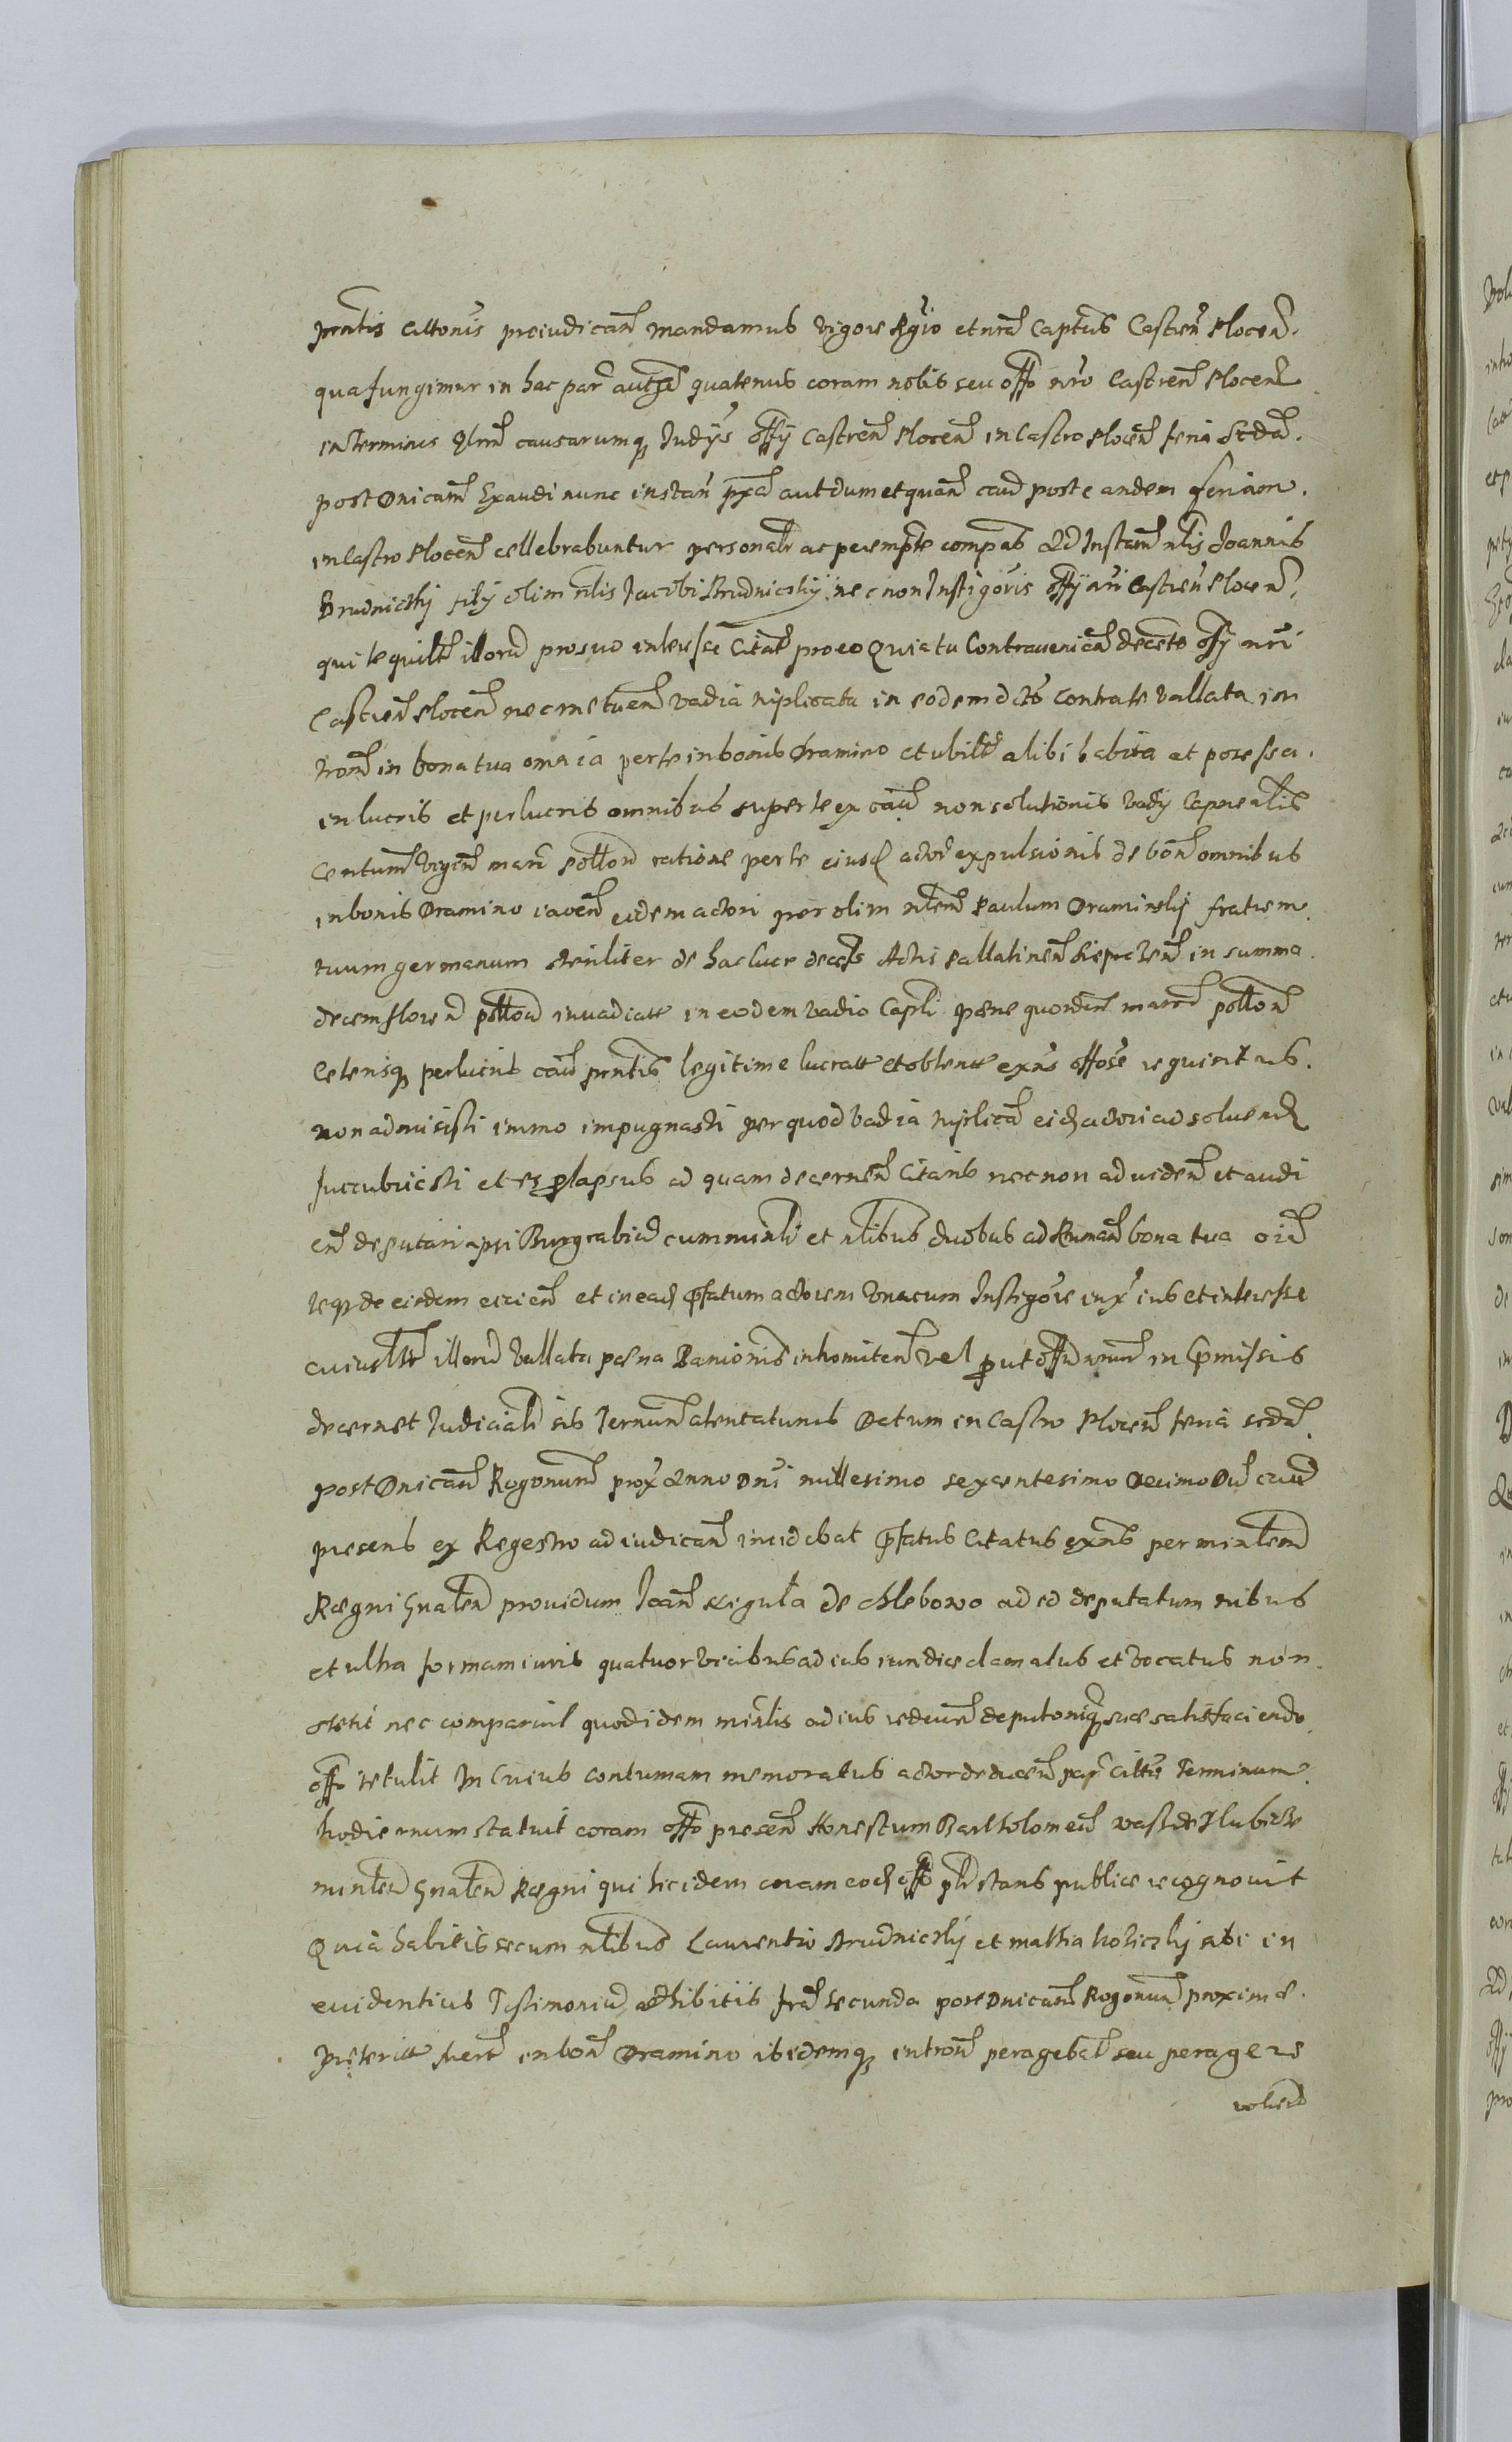 prntis Actoris preiudican mandamus vigore Rgio et nra Captus Castren Plocen.
qua fungimur in hac par autte quatenus coram nobis seu offo nro Castren Plocen
in Terminis qlrn causarumq Judys offy Castren Plocen in Castro Plocen feria Scda.
post Dnicam Exaudi nunc instan pxa aut dum et quan caus post eandem feriam.
in Castro Plocen cellebrabuntur personalr ac perempte compas Ad Instam nlis Joannis
Brudniczky fily olim nlis Jacobi Brudniczky nec non Instigoris offy nri Castren Plocen.
qui te quiltt illoru pro suo interesse Citat pro eo Quia tu Contravenien decreto offy nri
Castren Plocen nec metuen vadia triplicata in eodem dcto contra te vallata in
tromn in bona tua omnia per te in bonis Dramino et ubiltt alibi habita et possessa.
in lucris et perlucris omnibus super te ex caus non solutionis vady Capnealis
Centum vigin marc pollon ratione per te eiusd actor expulsionis de bon omnibus
in bonis Dramino iacen eidem actori per olim nlem Paulum Draminsky fratrem
tuum germanum steriliter de hac luce deces Actis Pallatinen Siepreen in summa.
decem floren pollon invadiatt in eodem vadio Capli pene quondam marcu pollon
Ceterisq perlucris caus prntis legitime lucratt et obtentt exns offose requisitus.
non admisisti immo impugnasti per quod vadia triplica eid actori ad solvend
succubuisti et es prolapsus ad quam decernen Citaris nec non ad viden et audi
en deputari ipsi Burgrabiu cum minli et nlibus duobus ad Ruman bona tua oia
teq de eisdem eicien et in ead pfatum actorem una cum Instigore inx ius et interesse
cuiusltt illoru vallata poena Banionis inhomiten vel prout offm nrum in Pmissis
decernet Judicialr sis Ternum atentaturus Datum in Castro Plocen feria scda.
post Dnicam Rogonum prox Anno Dni millesimo sexcentesimo Decimo Du cum
presens ex Regestro ad iudican incidebat Pfatus Citatus exns per minlem
Regni Gnalem providum Joan Szigula de Chlebowo ad id deputatum tribus
et ultra formam iuris quatuor vicibus ad ius iuridice clamatus et vocatus non
stetit nec comparuit quod idem minlis ad ius redeun deputoniq suae satisfaciendo
offo retulit In Cuius contumam memoratus actor deducen par Cittis Terminum
hodiernum statuit coram offo presen Honestum Bartholomeu Wass de Hlubicze
minlem Gnalem Regni qui hic idem coram eod offo plr stans publice recognovit
Quia habitis secum nlibus Laurentio Brudnicky et Mathia Koziczky sibi in
evidentius Testimoniu adhibitis fra secunda post Dnicam Rogonum proxime.
preteritt fuert in bon Dramino ibidemq introm peragebat seu peragere
voluit